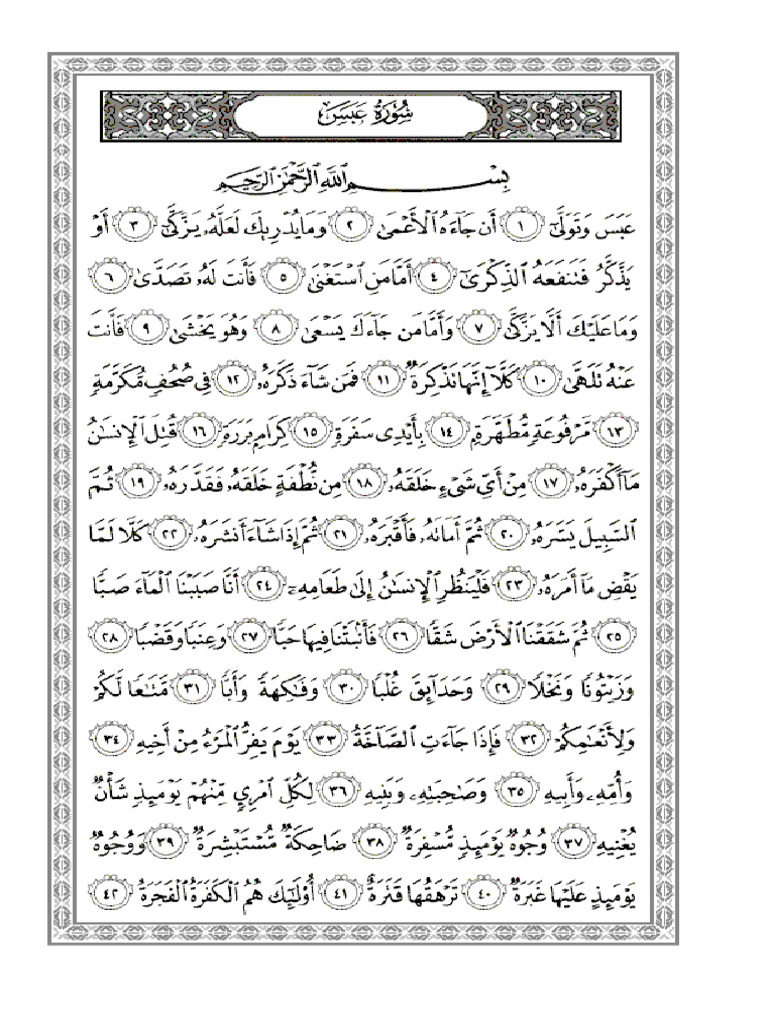 سُورَةُ عَبَسَ
بِسْمِ اللَّهِ الرَّحْمَٰنِ الرَّحِيمِ
عَبَسَ وَتَوَلَّىٰٓ ١ أَن جَآءَهُ الْأَعْمَىٰ ٢ وَمَا يُدْرِيكَ لَعَلَّهُۥ يَزَّكَّىٰٓ ٣ أَوْ
يَذَّكَّرُ فَنَنفَعَهُ الذِّكْرَىٰٓ ٤ أَمَّا مَنِ اسْتَغْنَىٰ ٥ فَأَنتَ لَهُۥ تَصَدَّىٰ ٦
وَمَا عَلَيْكَ أَلَّا يَزَّكَّىٰ ٧ وَأَمَّا مَن جَآءَكَ يَسْعَىٰ ٨ وَهُوَ يَخْشَىٰ ٩ فَأَنتَ
عَنْهُ تَلَهَّىٰ ١٠ كَلَّآ إِنَّهَا تَذْكِرَةٌ ١١ فَمَن شَآءَ ذَكَرَهُۥ ١٢ فِي صُحُفٍ مُّكَرَّمَةٍ
١٣ مَّرْفُوعَةٍ مُّطَهَّرَةٍۭ ١٤ بِأَيْدِي سَفَرَةٍ ١٥ كِرَامٍۭ بَرَرَةٍ ١٦ قُتِلَ الْإِنسَٰنُ
مَآ أَكْفَرَهُۥ ١٧ مِنْ أَيِّ شَيْءٍ خَلَقَهُۥ ١٨ مِن نُّطْفَةٍ خَلَقَهُۥ فَقَدَّرَهُۥ ١٩ ثُمَّ
السَّبِيلَ يَسَّرَهُۥ ٢٠ ثُمَّ أَمَاتَهُۥ فَأَقْبَرَهُۥ ٢١ ثُمَّ إِذَا شَآءَ أَنشَرَهُۥ ٢٢ كَلَّا لَمَّا
يَقْضِ مَآ أَمَرَهُۥ ٢٣ فَلْيَنظُرِ الْإِنسَٰنُ إِلَىٰ طَعَامِهِۦٓ ٢٤ أَنَّا صَبَبْنَا الْمَآءَ صَبًّا
٢٥ ثُمَّ شَقَقْنَا الْأَرْضَ شَقًّا ٢٦ فَأَنۢبَتْنَا فِيهَا حَبًّا ٢٧ وَعِنَبًا وَقَضْبًا ٢٨
وَزَيْتُونًا وَنَخْلًا ٢٩ وَحَدَآئِقَ غُلْبًا ٣٠ وَفَٰكِهَةً وَأَبًّا ٣١ مَّتَٰعًا لَّكُمْ
وَلِأَنْعَٰمِكُمْ ٣٢ فَإِذَا جَآءَتِ الصَّآخَّةُ ٣٣ يَوْمَ يَفِرُّ الْمَرْءُ مِنْ أَخِيهِ ٣٤
وَأُمِّهِۦ وَأَبِيهِ ٣٥ وَصَٰحِبَتِهِۦ وَبَنِيهِ ٣٦ لِكُلِّ امْرِئٍ مِّنْهُمْ يَوْمَئِذٍ شَأْنٌ
يُغْنِيهِ ٣٧ وُجُوهٌ يَوْمَئِذٍ مُّسْفِرَةٌ ٣٨ ضَاحِكَةٌ مُّسْتَبْشِرَةٌ ٣٩ وَوُجُوهٌ
يَوْمَئِذٍ عَلَيْهَا غَبَرَةٌ ٤٠ تَرْهَقُهَا قَتَرَةٌ ٤١ أُوْلَٰٓئِكَ هُمُ الْكَفَرَةُ الْفَجَرَةُ ٤٢